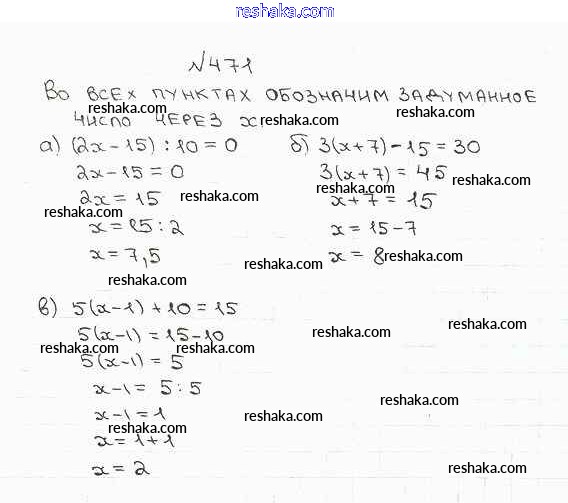 reshaka.com
№471
Во всех пунктах обозначим задуманное
reshaka.com
число через x reshaka.com
а) (2x-15):10=0
б) 3(x+7)-15=30
reshaka.com
2x-15=0
3(x+7)=45
reshaka.com
reshaka.com
2x=15 reshaka.com
x+7=15
reshaka.com
x=15:2
x=15-7
x=7,5
x=8 reshaka.com
reshaka.com
reshaka.com
в) 5(x-1)+10=15
5(x-1)=15-10
reshaka.com
reshaka.com
reshaka.com reshaka.com
5(x-1)=5
x-1=5:5
reshaka.com
x-1=1
reshaka.com
reshaka.com
x=1+1
x=2
reshaka.com